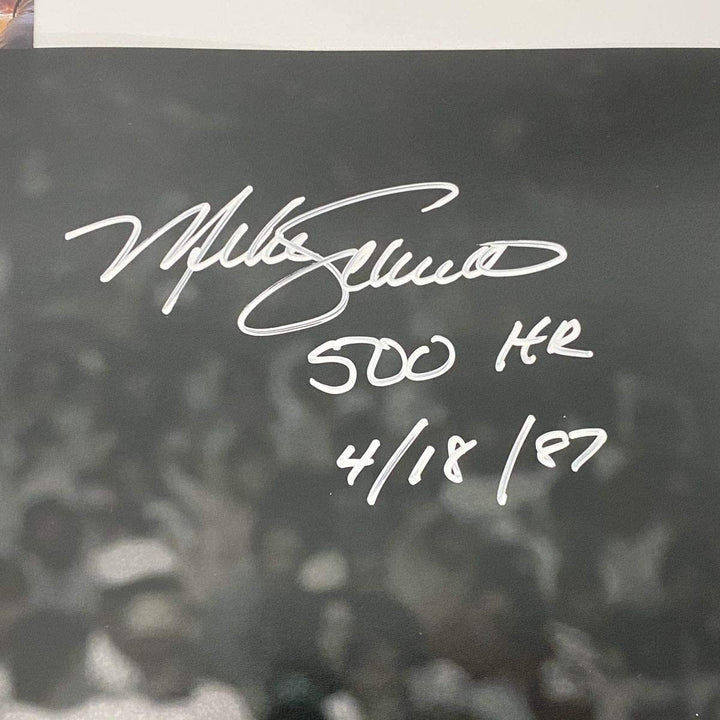 Mike Schmidt
500 HR
4/18/87